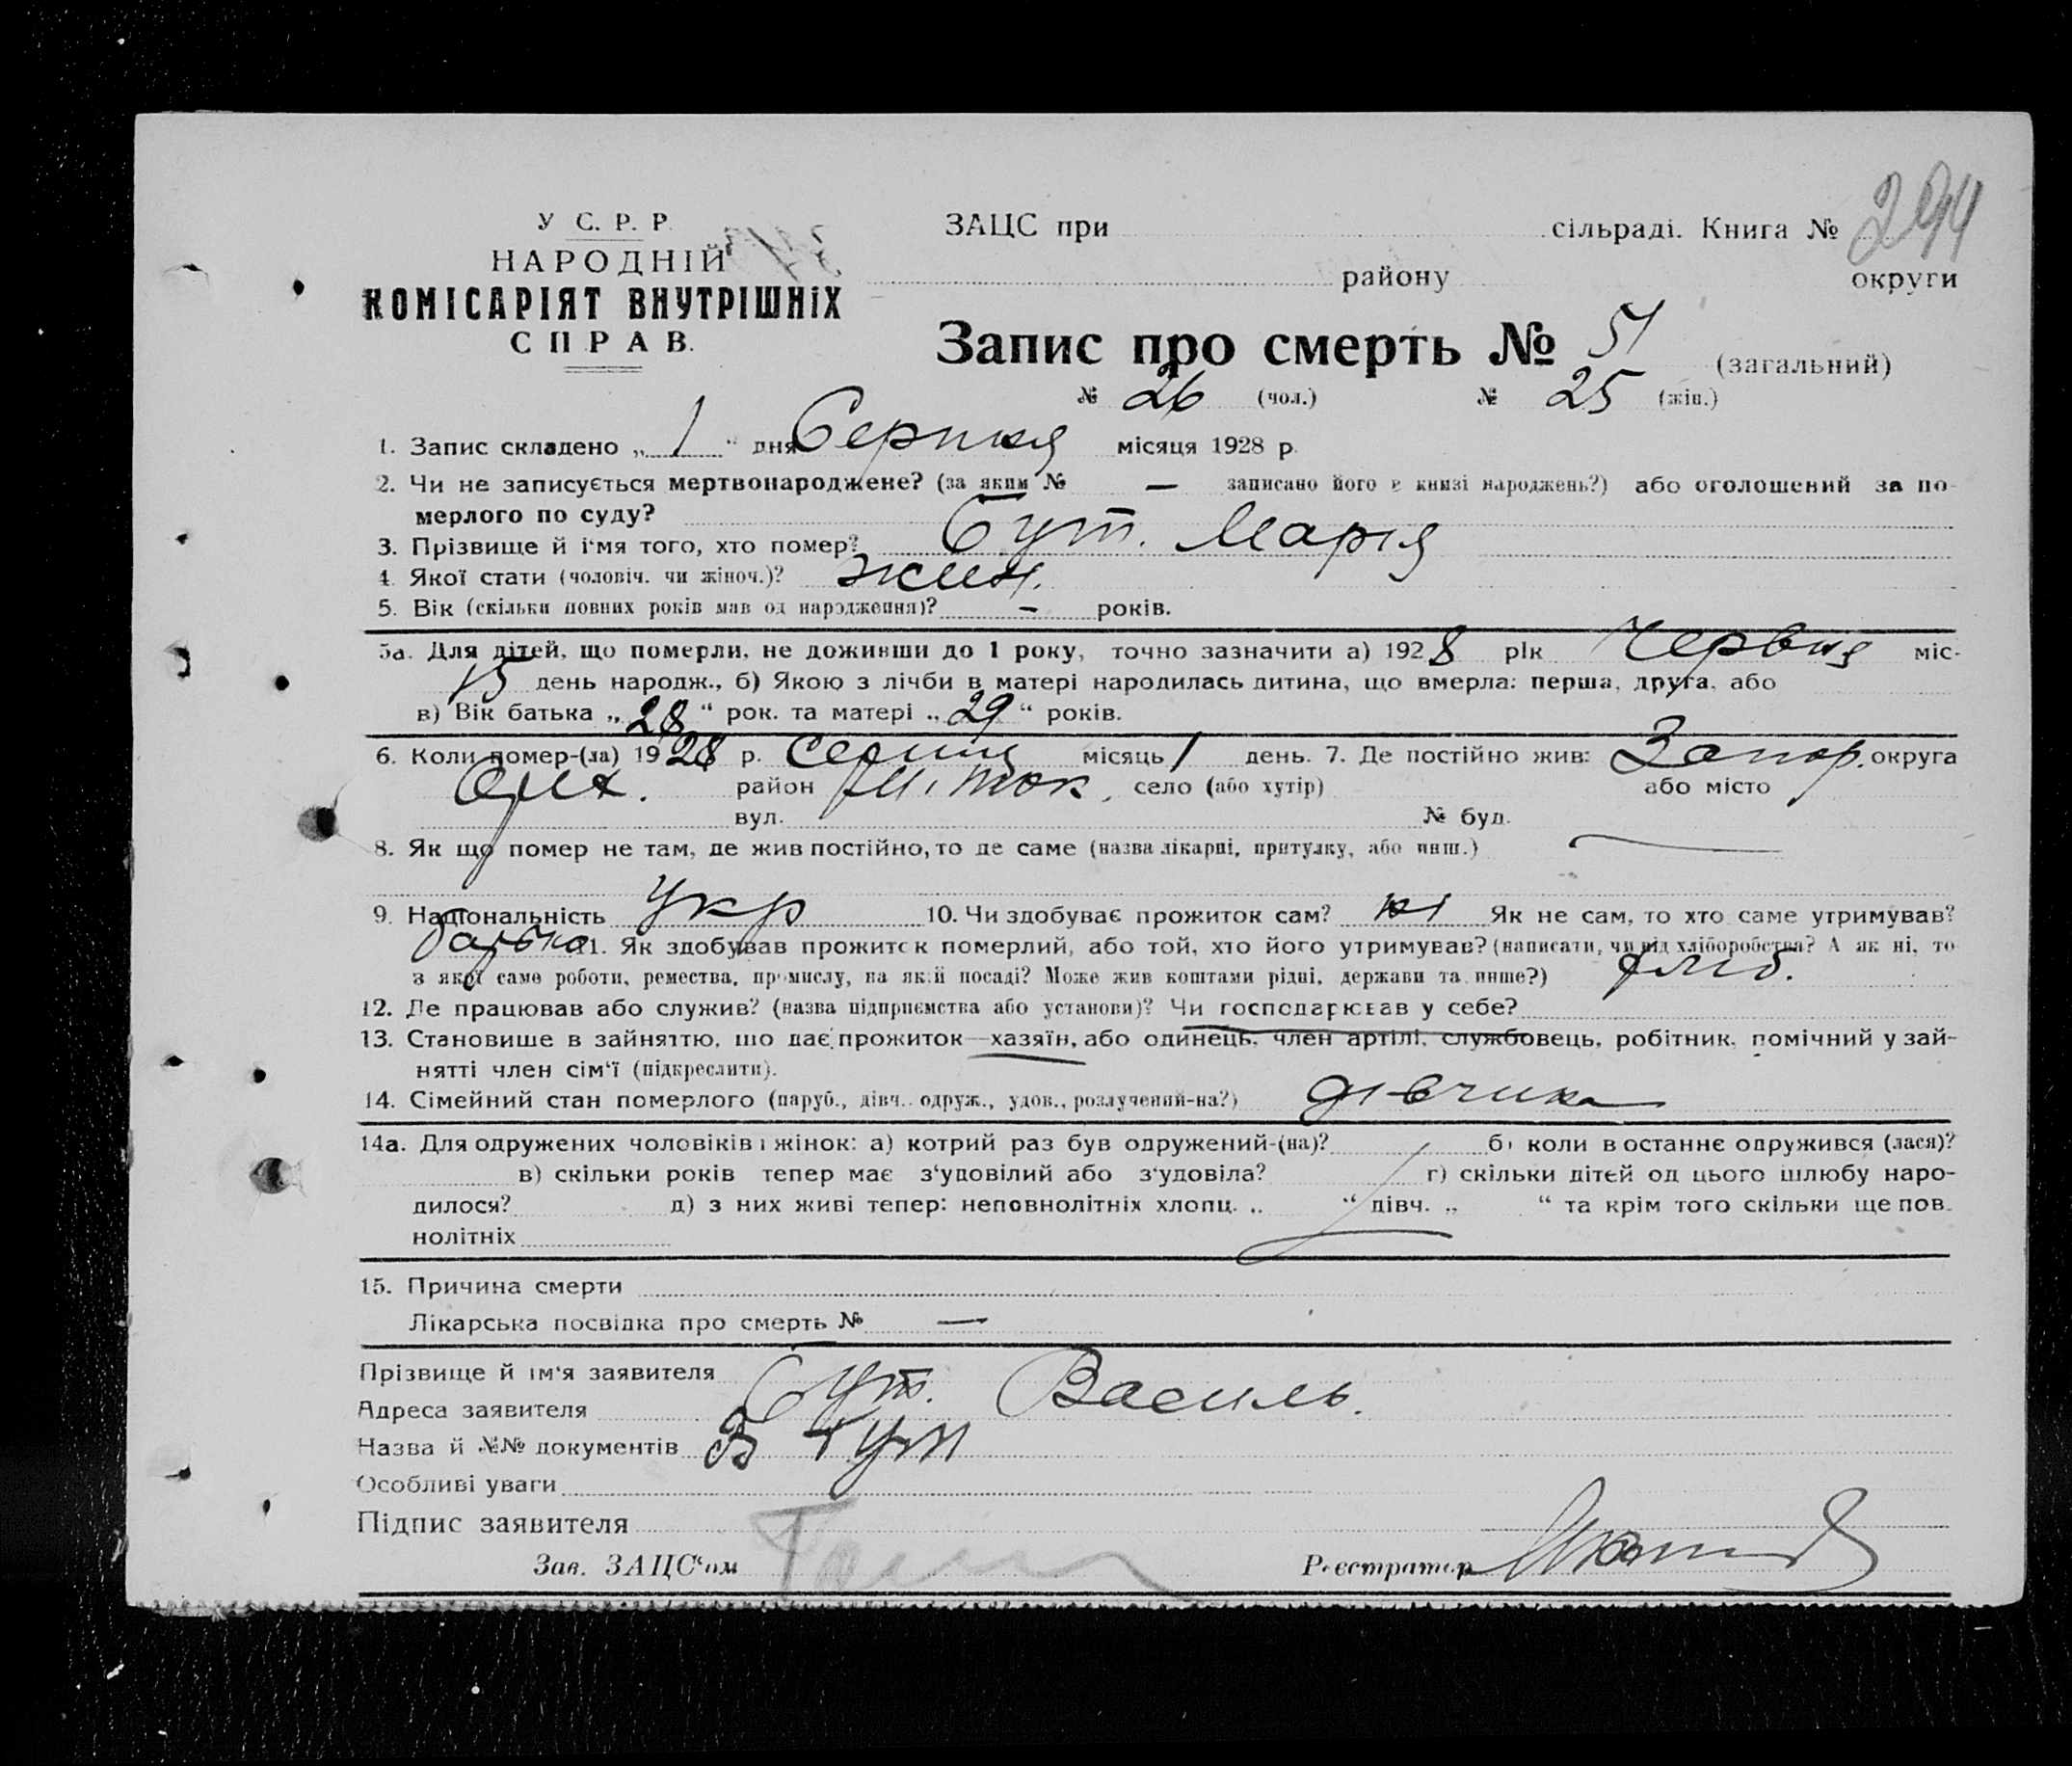 294
У С. Р. Р.
НАРОДНІЙ
КОМІСАРІЯТ ВНУТРІШНІХ
СПРАВ.
ЗАЦС при сільраді. Книга №
району округи
Запис про смерть № 51 (загальний)
№ 26 (чол.) № 25 (жін.)
1. Запис складено „ 1 “ дня Серпня місяця 1928 р.
2. Чи не записується мертвонароджене? (за яким № — записано його в книзі народжень?) або оголошений за по-
мерлого по суду?
3. Прізвище й і‘мя того, хто помер? Бут. Марія
4. Якої стати (чоловіч. чи жіноч.)? жин.
5. Вік (скільки повних років мав од народження)? — років.
5а. Для дітей, що померли, не доживши до 1 року, точно зазначити а) 1928 рік Червня міс-
15 день народж., б) Якою з лічби в матері народилась дитина, що вмерла: перша, друга, або
в) Вік батька „ 28 “ рок. та матері „ 29 “ років.
6. Коли помер-(ла) 1928 р. серпня місяць 1 день. 7. Де постійно жив: Запор. округа
район село (або хутір) або місто
вул. № буд.
8. Як що помер не там, де жив постійно, то де саме (назва лікарні, притулку, або инш.)
9. Національність Укр 10. Чи здобуває прожиток сам? ні Як не сам, то хто саме утримував?
батько 11. Як здобував прожиток померлий, або той, хто його утримував? (написати, чи від хліборобства? А як ні, то
з якої саме роботи, ремества, промислу, на якій посаді? Може жив коштами рідні, держави та инше?) хліб.
12. Де працював або служив? (назва підприємства або установи)? Чи господарював у себе?
13. Становише в зайняттю, що дає прожиток—хазяїн, або одинець, член артілі, службовець, робітник, помічний у зай-
нятті член сім‘ї (підкреслити).
14. Сімейний стан померлого (паруб., дівч., одруж., удов., розлучений-на?) дівчинка
14а. Для одружених чоловіків і жінок: а) котрий раз був одружений-(на)? б) коли востаннє одружився (лася)?
в) скільки років тепер має з‘удовілий або з‘удовіла? г) скільки дітей од цього шлюбу наро-
дилося? д) з них живі тепер: неповнолітніх хлопц. „ “ дівч. „ “ та крім того скільки ще пов-
нолітніх
15. Причина смерти
Лікарська посвідка про смерть № —
Прізвище й ім‘я заявителя Бут. Василь.
Адреса заявителя
Назва й №№ документів В Бут
Особливі уваги
Підпис заявителя
Зав. ЗАЦС‘ом Реєстратор